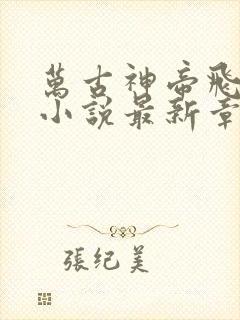 萬古神帝飛
小說最新章
張紀美